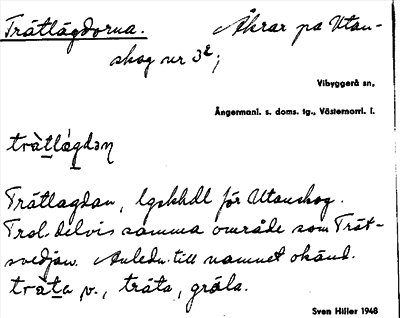 Tråtlägdorna. Åkrar på Utan-
skog nr 3²;
Vibyggerå sn,
Ångermanl. s. doms. tg., Västernorrl. l.
Tråtlagdan, lgskhdl för Utanskog.
Trol. delvis samma område som Tråt-
svedjan. Anledn. till namnet okänd.
tråta v., träta, gräla.
Sven Hiller 1948